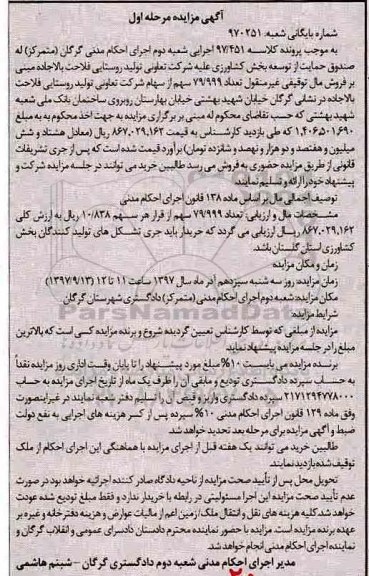 آگهی مزایده مرحله اول
شماره بایگانی شعبه: ۹۷۰۲۵۱
به موجب پرونده کلاسه ۹۷/۴۵۱ اجرایی شعبه دوم اجرای احکام مدنی گرگان (متمرکز) له
صندوق حمایت از توسعه بخش کشاورزی علیه شرکت تعاونی تولید روستایی فلاحت بالاجاده مبنی
بر فروش مال توقیفی غیرمنقول تعداد ۷۹/۹۹۹ سهم از سهام شرکت تعاونی تولید روستایی فلاحت
بالاجاده در نشانی گرگان خیابان شهید بهشتی خیابان بهارستان روبروی ساختمان بانک ملی شعبه
شهید بهشتی که حسب تقاضای محکوم له مبنی بر برگزاری مزایده به جهت اخذ محکوم به به مبلغ
۱,۴۰۶,۵۰۱,۶۹۰ که طی بازدید کارشناس به قیمت ۸۶۷,۰۲۹,۱۶۲ ریال (معادل هشتاد و شش
میلیون و هفتصد و دو هزار و نهصد و شانزده تومان) برآورد قیمت شده است که پس از جری تشریفات
قانونی از طریق مزایده حضوری به فروش می رسد طالبین خرید می توانند در جلسه مزایده شرکت و
پیشنهاد خود را ارائه و تسلیم نمایند
توصیف اجمالی مال بر اساس ماده ۱۳۸ قانون اجرای احکام مدنی
مشخصات مال و ارزیابی: تعداد ۷۹/۹۹۹ سهم از قرار هر سهم ۱۰/۸۳۸ ریال به ارزش کلی
۸۶۷,۰۲۹,۱۶۲ ریال ارزیابی می گردد که خریدار باید جزی تشکل های تولید کنندگان بخش
کشاورزی استان گلستان باشد.
زمان و مکان مزایده
زمان مزایده: روز سه شنبه سیزدهم آذر ماه سال ۱۳۹۷ ساعت ۱۱ تا ۱۲ (۱۳۹۷/۹/۱۳)
مکان مزایده: شعبه دوم اجرای احکام مدنی (متمرکز) دادگستری شهرستان گرگان
شرایط مزایده:
مزایده از مبلغی که توسط کارشناس تعیین گردیده شروع و برنده مزایده کسی است که بالاترین
مبلغ را در جلسه مزایده پیشنهاد نماید
برنده مزایده می بایست ۱۰% مبلغ مورد پیشنهاد را تا پایان وقت اداری روز مزایده نقداً
به حساب سپرده دادگستری تودیع و مابقی آن را ظرف یک ماه از تاریخ اجرای مزایده به حساب
۲۱۷۱۲۹۴۷۷۸۰۰۰ سپرده دادگستری واریز و قبض آن را تسلیم دفتر شعبه نمایند در غیراینصورت
وفق ماده ۱۲۹ قانون اجرای احکام مدنی ۱۰% سپرده پس از کسر هزینه های اجرایی به نفع دولت
ضبط و آگهی مزایده برای مرحله بعد تجدید خواهد شد.
طالبین خرید می توانند یک هفته قبل از اجرای مزایده با هماهنگی این اجرای احکام از ملک
توقیف شده بازدید نمایند.
تحویل محل پس از تأیید صحت مزایده از ناحیه دادگاه صادر کننده اجرائیه خواهد بود در صورت
عدم تأیید صحت مزایده این اجرا مسئولیتی در رابطه با خریدار ندارد و فقط مبلغ تودیع شده عودت
خواهد شد کلیه هزینه های نقل و انتقال ملک/زمین اعم از مالیات عوارض و هزینه دفترخانه و غیره بر
عهده برنده مزایده است. مزایده با حضور نماینده محترم دادستان دادسرای عمومی و انقلاب گرگان و
نماینده اجرای احکام مدنی انجام خواهد شد.
مدیر اجرای احکام مدنی شعبه دوم دادگستری گرگان - شبنم هاشمی